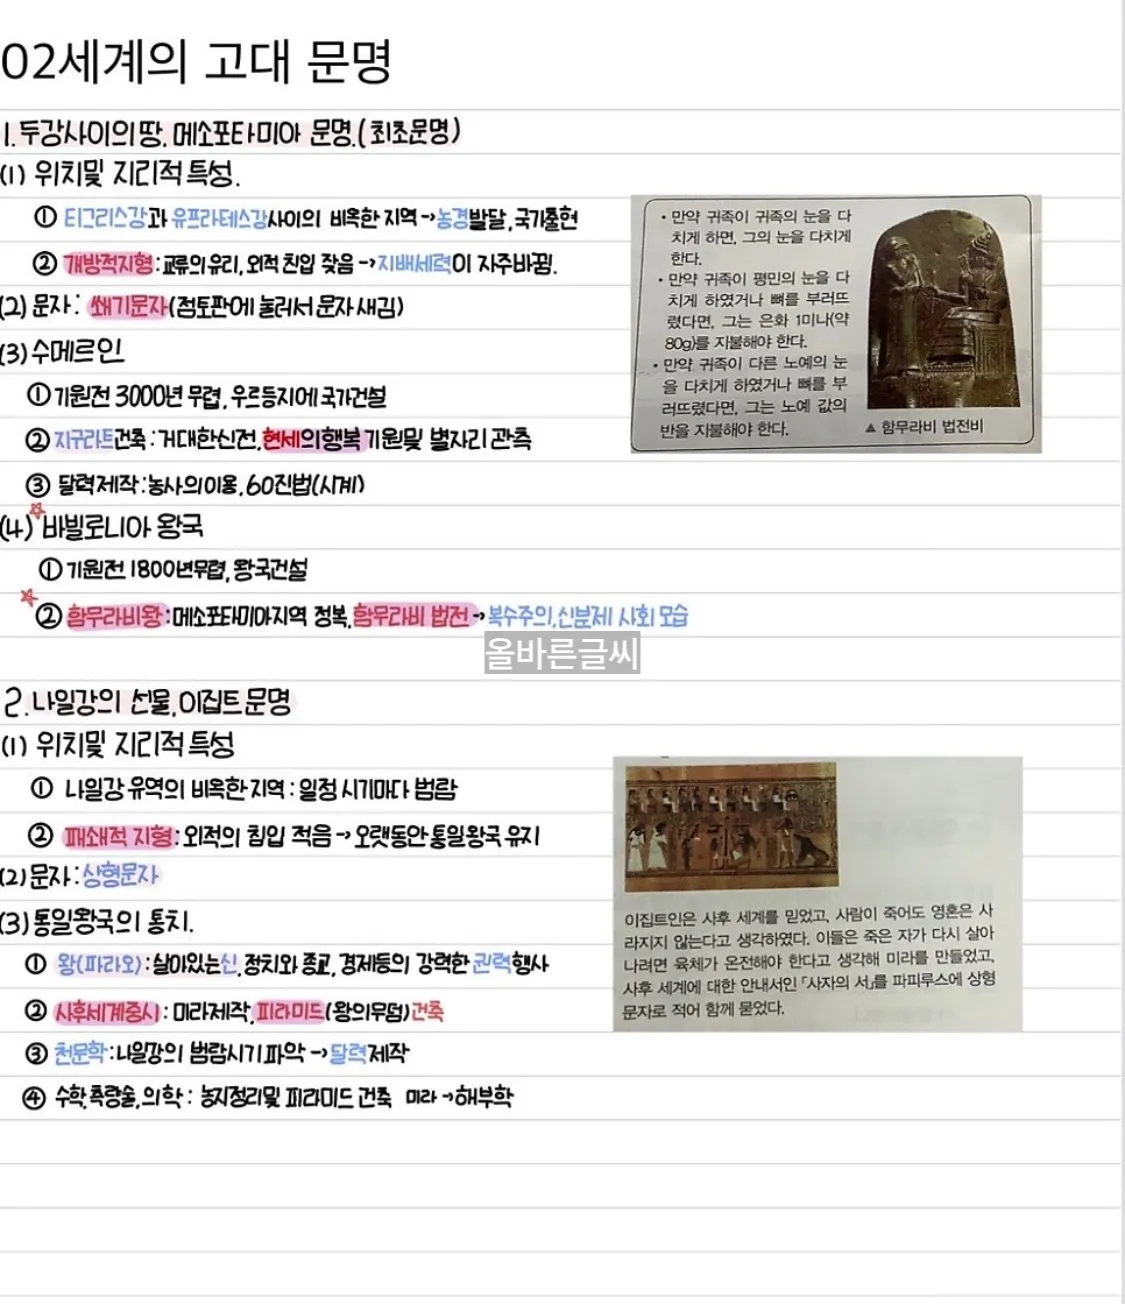 02세계의 고대 문명
1. 두강사이의 땅, 메소포타미아 문명.(최초문명)
(1) 위치및 지리적 특성.
① 티그리스강과 유프라테스강사이의 비옥한 지역→농경발달, 국가출현
② 개방적지형: 교류의 유리, 외적 친입 잦음→지배세력이 자주바뀜.
(2) 문자: 쐐기문자(점토판에 눌러서 문자 새김)
(3) 수메르인
① 기원전 3000년 무렵, 우르등지에 국가건설
② 지구라트건축: 거대한신전, 현세의행복 기원및 별자리 관측
③ 달력제작: 농사의이용, 60진법(시계)
(4) 바빌로니아 왕국
① 기원전 1800년무렵, 왕국건설
② 함무라비왕: 메소포타미아지역 정복, 함무라비 법전→복수주의, 신분제 사회 모습
• 만약 귀족이 귀족의 눈을 다
치게 하면, 그의 눈을 다치게
한다.
• 만약 귀족이 평민의 눈을 다
치게 하였거나 뼈를 부러뜨
렸다면, 그는 은화 1미나(약
80g)를 지불해야 한다.
• 만약 귀족이 다른 노예의 눈
을 다치게 하였거나 뼈를 부
러뜨렸다면, 그는 노예 값의
반을 지불해야 한다.
▲ 함무라비 법전비
올바른글씨
2. 나일강의 선물, 이집트문명
(1) 위치및 지리적 특성
① 나일강 유역의 비옥한지역: 일정 시기마다 범람
② 폐쇄적 지형: 외적의 침입 적음→오랫동안 통일왕국 유지
(2) 문자: 상형문자
(3) 통일왕국의 통치.
① 왕(파라오): 살아있는신, 정치와 종교, 경제등의 강력한 권력행사
② 사후세계중시: 미라제작, 피라미드(왕의무덤)건축
③ 천문학: 나일강의 범람시기 파악→달력제작
④ 수학, 측량술, 의학: 농지정리및 피라미드 건축 미라→해부학
이집트인은 사후 세계를 믿었고, 사람이 죽어도 영혼은 사
라지지 않는다고 생각하였다. 이들은 죽은 자가 다시 살아
나려면 육체가 온전해야 한다고 생각해 미라를 만들었고,
사후 세계에 대한 안내서인 「사자의 서」를 파피루스에 상형
문자로 적어 함께 묻었다.